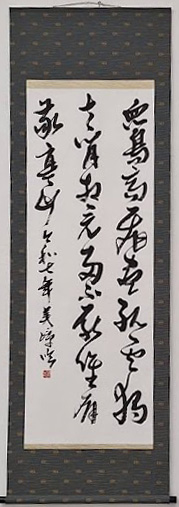 衆鳥高飛盡孤雲獨
去閒相看兩不厭
敬亭山 令和七年